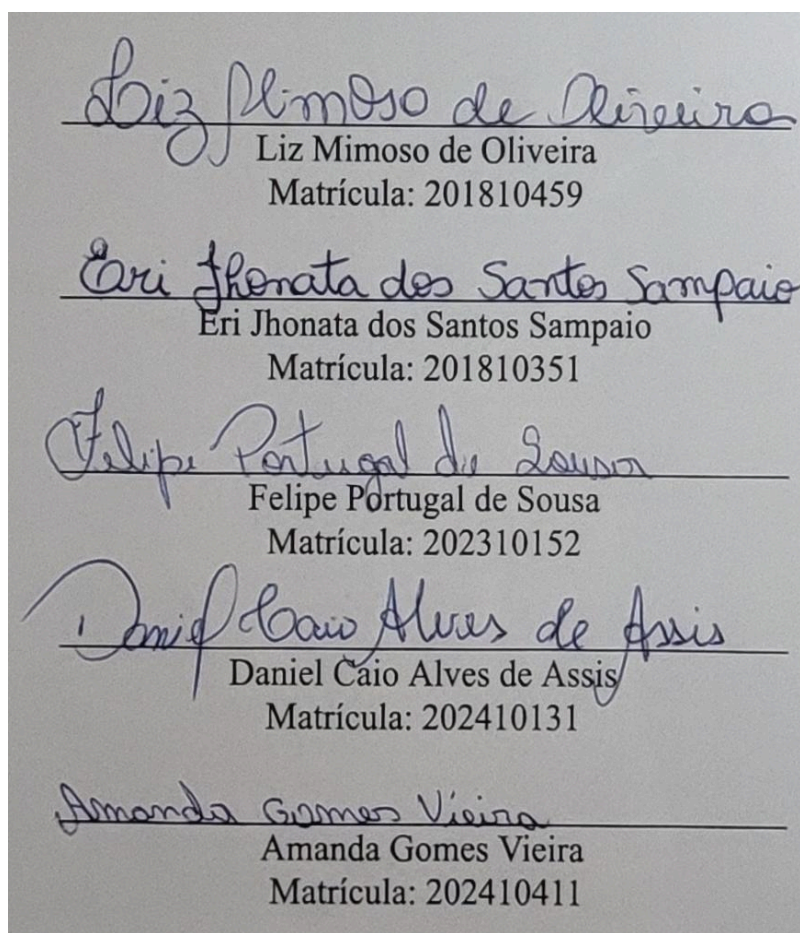 Liz Mimoso de Oliveira
Liz Mimoso de Oliveira
Matrícula: 201810459
Eri Jhonata dos Santos Sampaio
Eri Jhonata dos Santos Sampaio
Matrícula: 201810351
Felipe Portugal de Sousa
Felipe Portugal de Sousa
Matrícula: 202310152
Daniel Caio Alves de Assis
Daniel Caio Alves de Assis
Matrícula: 202410131
Amanda Gomes Vieira
Amanda Gomes Vieira
Matrícula: 202410411